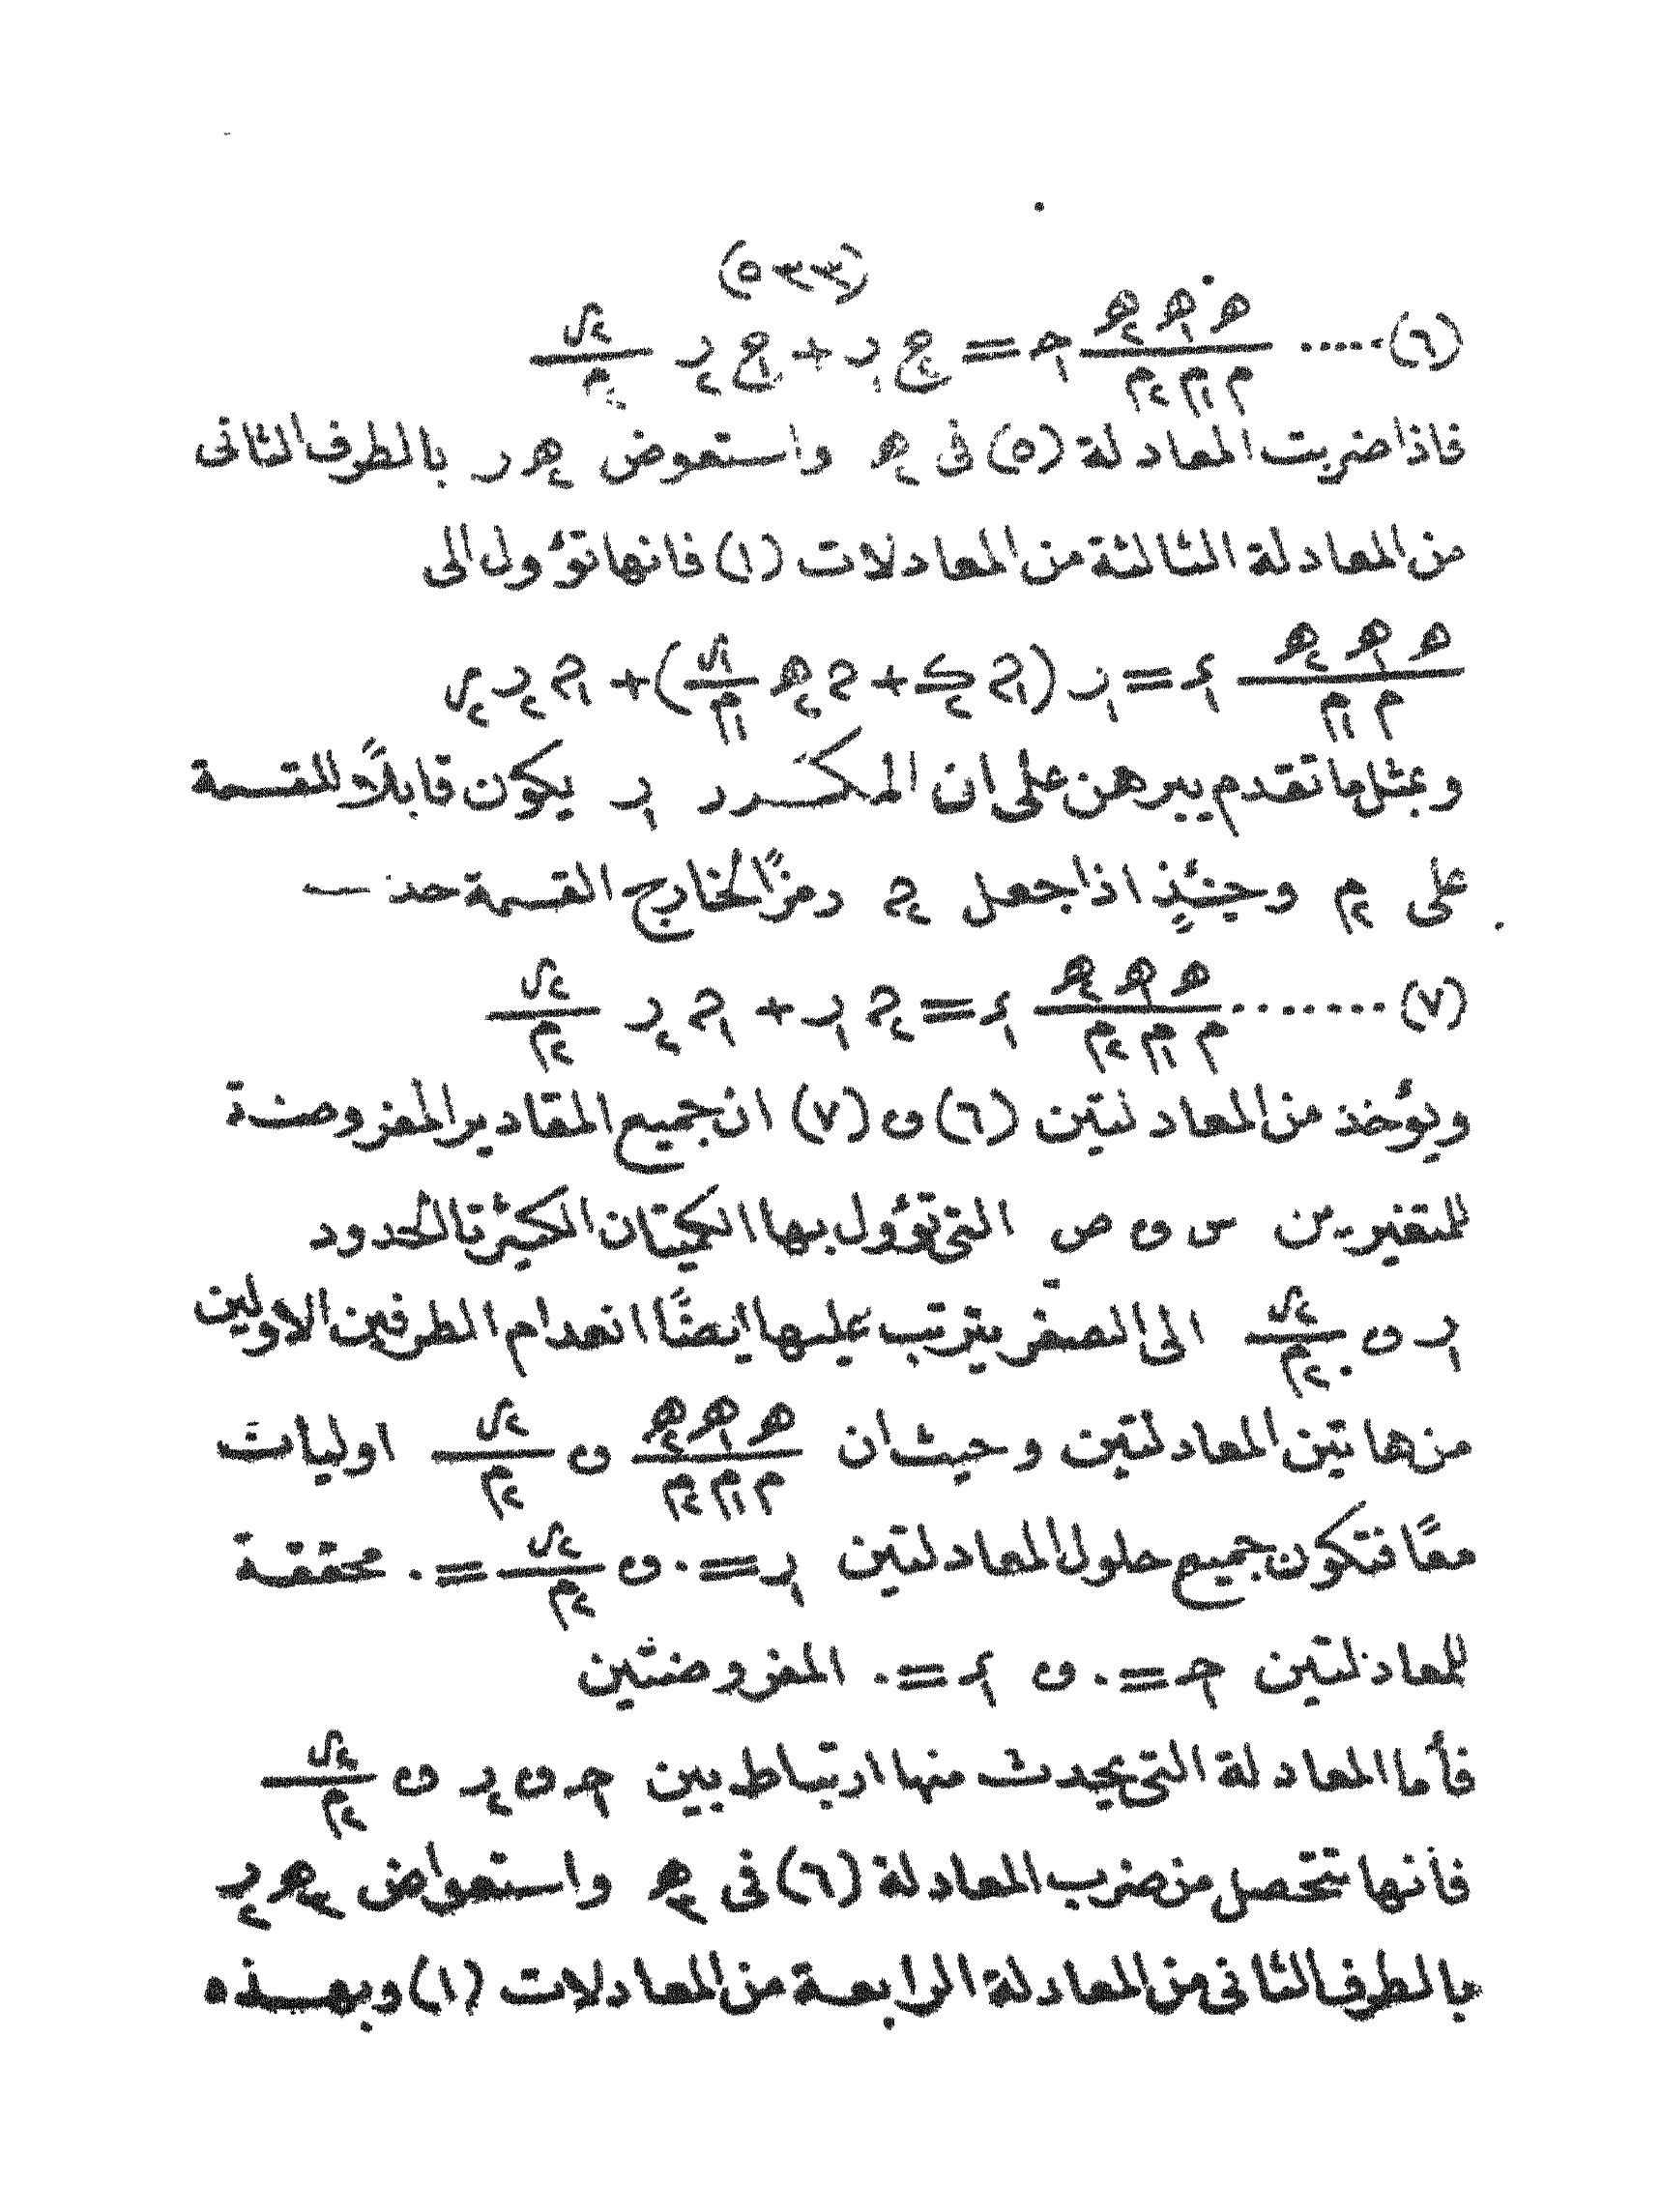 (٥٣٣)
(٦)..... هـ هـ١ هـ٢ / م م١ م٢ حـ١ = ج٢ ر١ + ج١ ر٢ س٢ / م٢
فاذا ضربت المعادلة (٥) فى هـ٢ واستعوض هـ٢ ر بالطرف الثانى
من المعادلة الثالثة من المعادلات (١) فانها تؤول الى
هـ هـ١ هـ٢ / م م١ ء١ = ر١ (ح١ ك٢ + ح هـ٢ س١ / م١) + ح١ ر٢ س٢
وبمثل ما تقدم يبرهن على ان المكرر ر١ يكون قابلاً للقسمة
على م٢ وحينئذٍ اذا جعل ح٢ رمزًا لخارج القسمة حدث
(٧)........ هـ هـ١ هـ٢ / م م١ م٢ ء١ = ح٢ ر١ + ح١ ر٢ س٢ / م٢
ويؤخذ من المعادلتين (٦) و (٧) ان جميع المقادير المفروضة
للمتغيرين س و ص التى تؤول بها الكميتان الكثيرتا الحدود
ر١ و س٢ / م٢ الى الصفر يترتب عليها ايضًا انعدام الطرفين الاولين
من هاتين المعادلتين وحيث ان هـ هـ١ هـ٢ / م م١ م٢ و س٢ / م٢ اوليات
معًا فتكون جميع حلول المعادلتين ر١ = ٠ و س٢ / م٢ = ٠ محققة
للمعادلتين حـ١ = ٠ و ء١ = ٠ المفروضتين
فأما المعادلة التى يحدث منها ارتباط بين حـ١ و ر٢ و س٢ / م٢
فأنها تتحصل من ضرب المعادلة (٦) فى هـ٣ واستعواض هـ٣ ر٢
بالطرف الثانى من المعادلة الرابعة من المعادلات (١) وبهذه